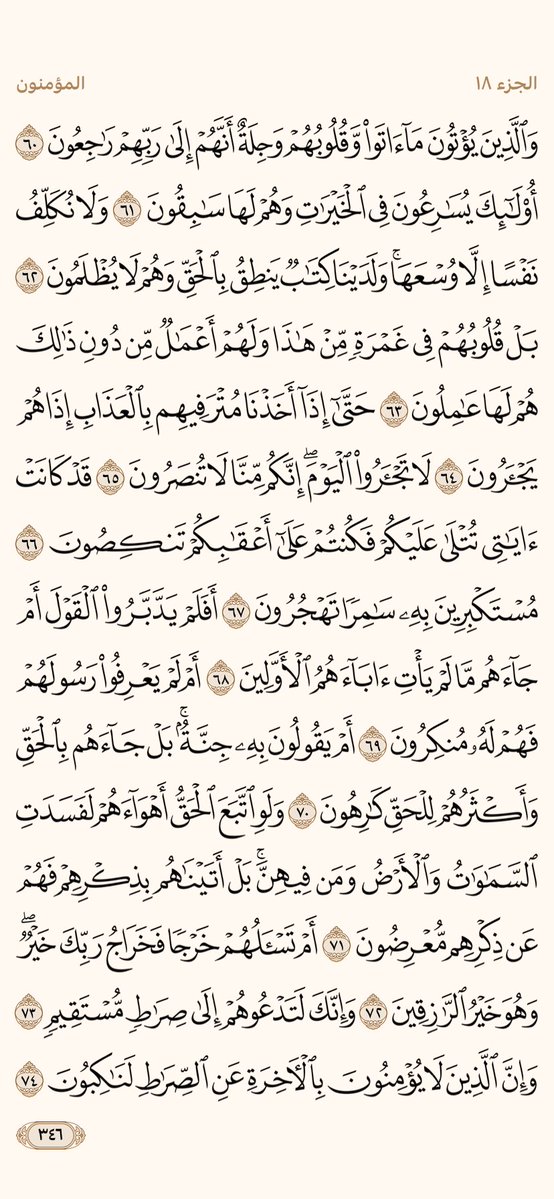 الجزء ١٨
المؤمنون
وَٱلَّذِينَ يُؤۡتُونَ مَآ ءَاتَواْ وَّقُلُوبُهُمۡ وَجِلَةٌ أَنَّهُمۡ إِلَىٰ رَبِّهِمۡ رَٰجِعُونَ ٦٠
أُوْلَٰٓئِكَ يُسَٰرِعُونَ فِي ٱلۡخَيۡرَٰتِ وَهُمۡ لَهَا سَٰبِقُونَ ٦١ وَلَا نُكَلِّفُ
نَفۡسًا إِلَّا وُسۡعَهَاۚ وَلَدَيۡنَا كِتَٰبٞ يَنطِقُ بِٱلۡحَقِّ وَهُمۡ لَا يُظۡلَمُونَ ٦٢
بَلۡ قُلُوبُهُمۡ فِي غَمۡرَةٖ مِّنۡ هَٰذَا وَلَهُمۡ أَعۡمَٰلٞ مِّن دُونِ ذَٰلِكَ
هُمۡ لَهَا عَٰمِلُونَ ٦٣ حَتَّىٰٓ إِذَآ أَخَذۡنَا مُتۡرَفِيهِم بِٱلۡعَذَابِ إِذَا هُمۡ
يَجۡـَٔرُونَ ٦٤ لَا تَجۡـَٔرُواْ ٱلۡيَوۡمَۖ إِنَّكُم مِّنَّا لَا تُنصَرُونَ ٦٥ قَدۡ كَانَتۡ
ءَايَٰتِي تُتۡلَىٰ عَلَيۡكُمۡ فَكُنتُمۡ عَلَىٰٓ أَعۡقَٰبِكُمۡ تَنكِصُونَ ٦٦
مُسۡتَكۡبِرِينَ بِهِۦ سَٰمِرٗا تَهۡجُرُونَ ٦٧ أَفَلَمۡ يَدَّبَّرُواْ ٱلۡقَوۡلَ أَمۡ
جَآءَهُم مَّا لَمۡ يَأۡتِ ءَابَآءَهُمُ ٱلۡأَوَّلِينَ ٦٨ أَمۡ لَمۡ يَعۡرِفُواْ رَسُولَهُمۡ
فَهُمۡ لَهُۥ مُنكِرُونَ ٦٩ أَمۡ يَقُولُونَ بِهِۦ جِنَّةُۢۚ بَلۡ جَآءَهُم بِٱلۡحَقِّ
وَأَكۡثَرُهُمۡ لِلۡحَقِّ كَٰرِهُونَ ٧٠ وَلَوِ ٱتَّبَعَ ٱلۡحَقُّ أَهۡوَآءَهُمۡ لَفَسَدَتِ
ٱلسَّمَٰوَٰتُ وَٱلۡأَرۡضُ وَمَن فِيهِنَّۚ بَلۡ أَتَيۡنَٰهُم بِذِكۡرِهِمۡ فَهُمۡ
عَن ذِكۡرِهِم مُّعۡرِضُونَ ٧١ أَمۡ تَسۡـَٔلُهُمۡ خَرۡجٗا فَخَرَاجُ رَبِّكَ خَيۡرٞۖ
وَهُوَ خَيۡرُ ٱلرَّٰزِقِينَ ٧٢ وَإِنَّكَ لَتَدۡعُوهُمۡ إِلَىٰ صِرَٰطٖ مُّسۡتَقِيمٖ ٧٣
وَإِنَّ ٱلَّذِينَ لَا يُؤۡمِنُونَ بِٱلۡأٓخِرَةِ عَنِ ٱلصِّرَٰطِ لَنَٰكِبُونَ ٧٤
٣٤٦